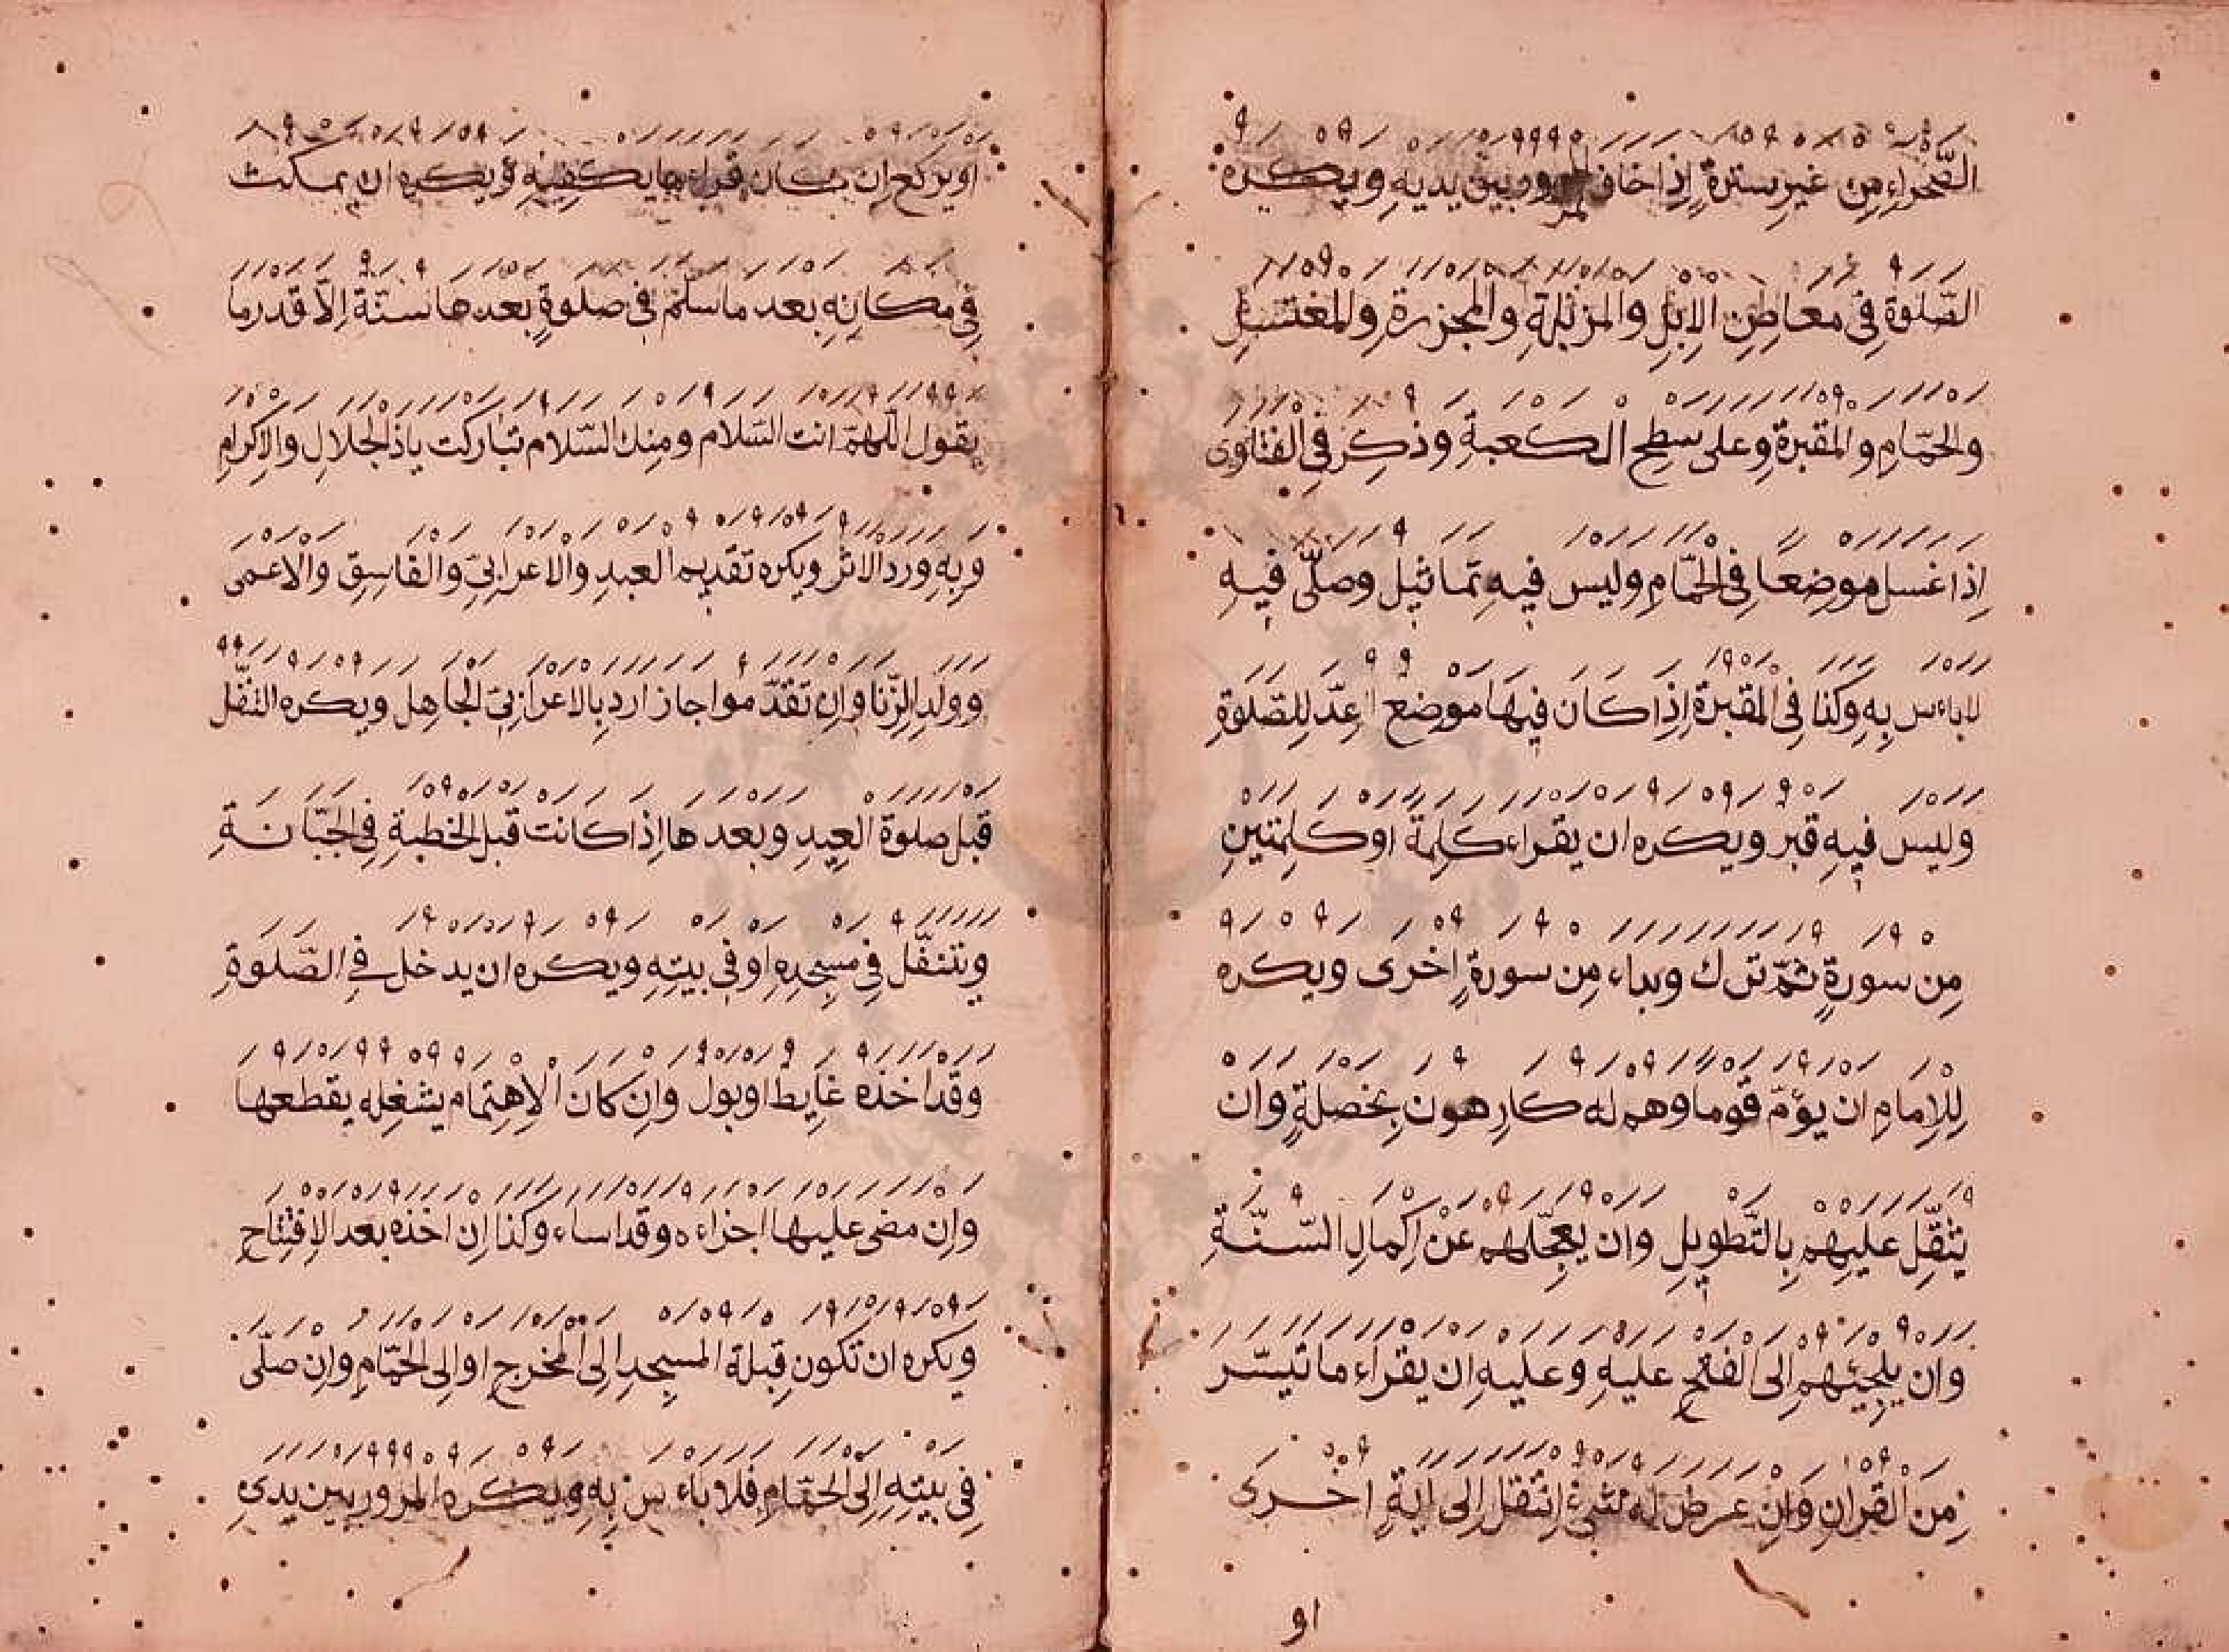 الصّحراءِ مِن غيرِ سترةٍ إِذا خاف المرور بين يديهِ ويكره
الصّلوة فِى معاطِنِ الإِبلِ والمزبلةِ والمجزرةِ والمغتسلِ
والحمّامِ والمقبرةِ وعلى سطحِ الكعبةِ وذكِر فِى الفتاوى
اِذا غسل موضِعا فِى الحمّامِ وليس فِيهِ تماثيل وصلّى فِيهِ
لاباءس بِهِ وكذا فِى المقبرةِ اِذا كان فِيها موضع اعِدّ لِلصّلوةِ
وليس فِيهِ قبر ويكره ان يقراء كلِمة اوكلِمتينِ
مِن سورةٍ ثمّ ترك وبداء مِن سورةٍ اخرى ويكره
لِلاِمامِ ان يؤمّ قوما وهم له كارِهون بِخصلةٍ وان
يثقِّل عليهِم بِالتّطويلِ وان يعجِّلهم عن اِكمالِ السّنّةِ
وان يلجِئهم الى الفتحِ عليهِ وعليهِ ان يقراء ما تيسّر
مِن القرانِ وان عرض له شئ اِنتقل اِلى ايةٍ اخرى
او
اويركع اِن كان قراء ما يكفِيهِ ويكره ان يمكث
فِى مكانِهِ بعد ما سلّم فى صلوةٍ بعدها سنّة اِلاّ قدر ما
يقول اللّهمّ انت السّلام ومِنك السّلام تباركت ياذالجلالِ والاِكرامِ
وبِهِ ورد الاثر ويكره تقديم العبدِ والاعرابِىّ والفاسِقِ والاعمى
وولدِ الزِّنا واِن تقدّموا جاز ارد بالاعرابِىّ الجاهِل ويكره التّنفّل
قبل صلوة العِيدِ وبعدها اِذا كانت قبل الخطبةِ فِى الجبّانةِ
ويتنفّل فِى مسجِدِهِ او فى بيتِهِ ويكره ان يدخل فِى الصّلوةِ
وقد اخذه غايِط اوبول واِن كان الاِهتِمام يشغِله يقطعها
واِن مضى عليها اجزاءه وقداساء وكذا اِن اخذه بعد الاِفتِتاحِ
ويكره ان تكون قِبلة المسجِدِ اِلى المخرجِ او اِلى الحمّامِ واِن صلّى
فِى بيتِهِ اِلى الحمّامِ فلا باءس بِهِ ويكره المرور بين يدىِ